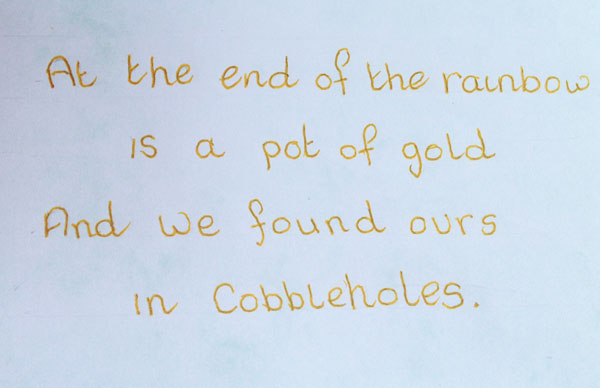 At the end of the rainbow
is a pot of gold
And we found ours
in Cobbleholes.